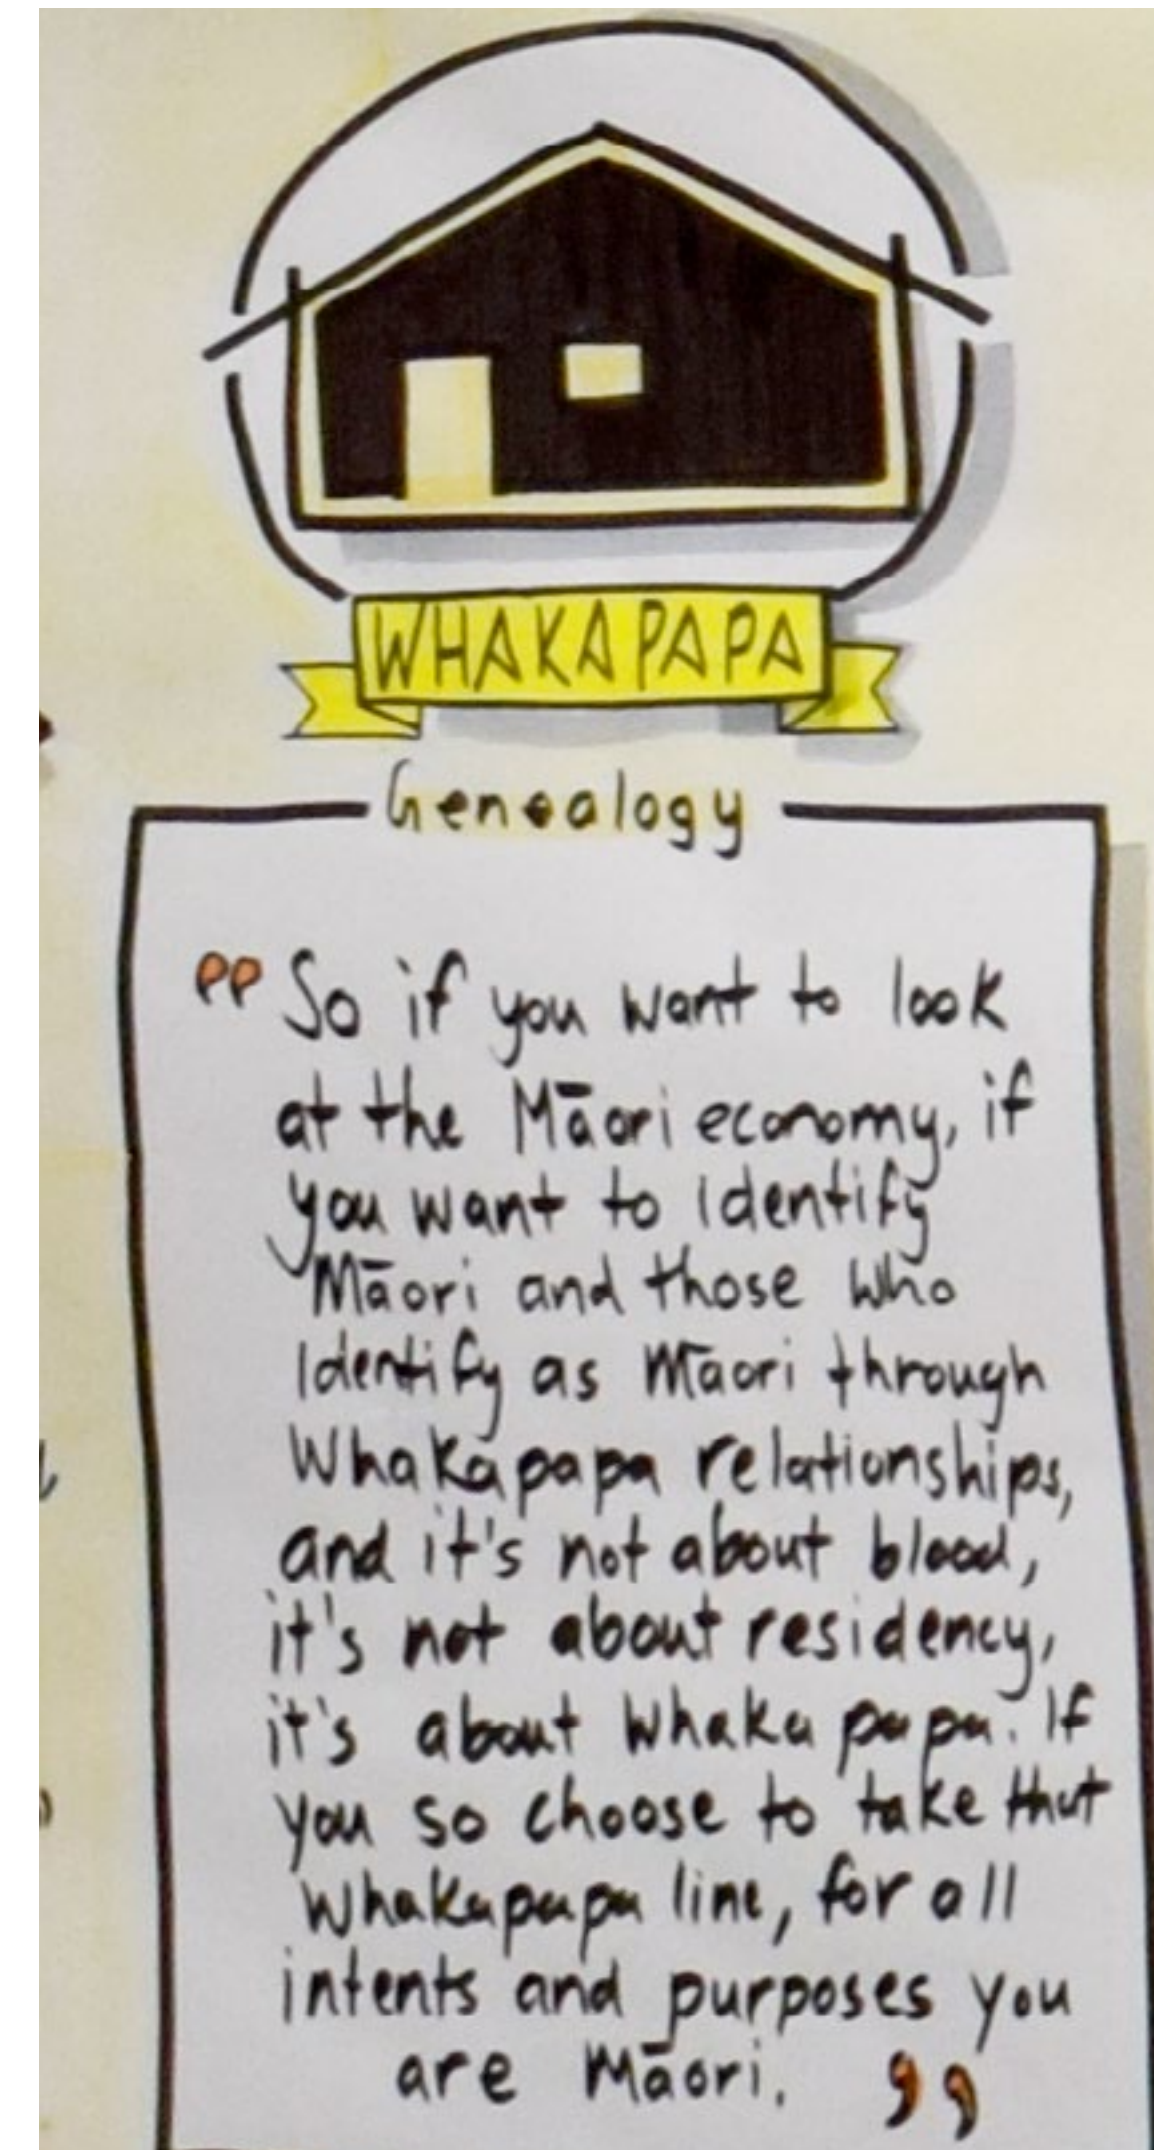 WHAKAPAPA
Genealogy
"So if you want to look
at the Māori economy, if
you want to identify
Māori and those who
Identify as Māori through
Whakapapa relationships,
and it's not about blood,
it's not about residency,
it's about Whakapapa. If
you so choose to take that
Whakapapa line, for all
intents and purposes you
are Māori."